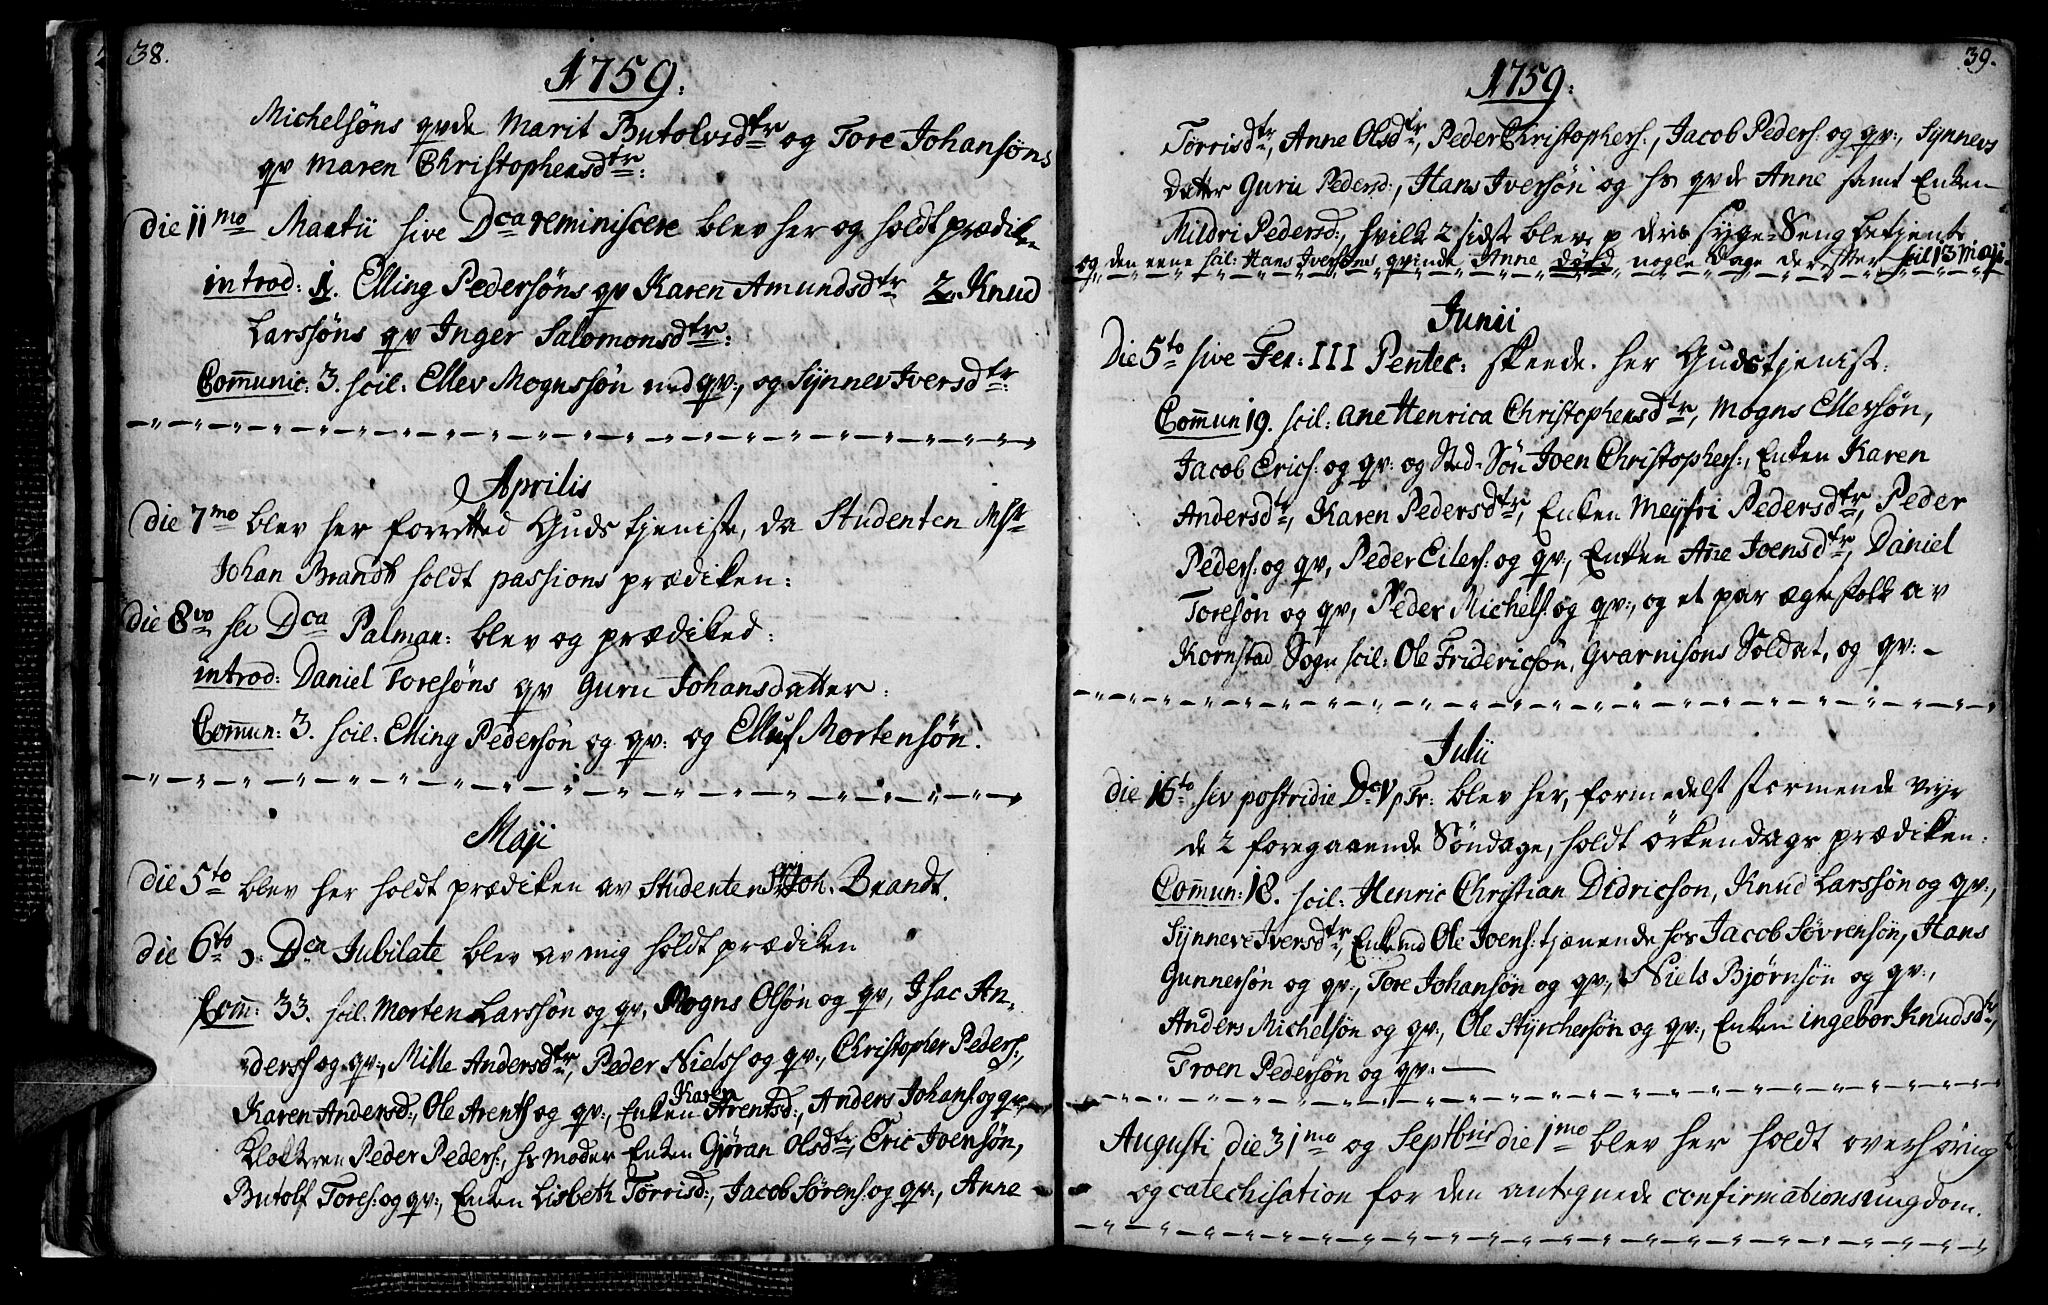 38.
1759.
Michelsöns qvde Marit Butolvsdtr og Tore Johansöns
qv Maren Christophersdtr:
die 11mo Martii sive Dca reminiscere blev her og holdt prædiken
introd: 1. Elling Pedersöns qv Karen Amundsdtr 2. Knud
Larssöns qv Inger Salomonsdtr:
Com̄unic: 3. scil: Ellev Mognssön med qv:, og Synnev Iversdtr:
Aprilis
die 7mo blev her forretted Guds tjeniste, da Studenten Msr
Johan Brandt holdt passions prædiken:
die 8vo seu Dca Palmar: blev og prædiked:
introd: Daniel Toresöns qv Guru Johansdatter:
Com̄un: 3. scil: Elling Pedersön og qv: og Elluf Mortensön.
Maji
die 5to blev her holdt prædiken av Studenten Joh. Brandt.
die 6to Dca Jubilate blev av mig holdt prædiken
Com̄: 33. scil: Morten Larssön og qv, Mogns Olsön og qv, Isac An-
derss og qv:, Mille Andersdtr, Peder Nielss og qv:, Christopher Peders:,
Karen Andersd:, Ole Arents og qv:, Enken Karen Arentsd:, Anders Johans: og qv:,
Klokkeren Peder Peders:, hs moder Enken Gjöran Olsdtr, Eric Joensön,
Butolf Tores: og qv:, Enken Lisbeth Törrisd:, Jacob Sörens: og qv:, Anne
39.
1759.
Törrisdtr, Anne Olsdtr, Peder Christophers:, Jacob Peders: og qv:, Synnevs
dater Guru Pedersd:, Hans Iversön og hs qvde Anne samt Enken
Mildri Pedersd:, hvilke 2 sidst blev p deris syge-Seng betjent
og den eene scil: Hans Iversöns qvinde Anne döde nogle dage derefter scil 13 Maji.
Junii
Die 5to sive Fer: III Pentec: skeede her Gudstjenist:
Com̄un 19. scil: Ane Henrica Christophersdtr, Mogns Ellersön,
Jacob Erics: og qv: og Sted-Sön Joen Christophers:, Enken Karen
Andersdtr, Karen Pedersdtr, Enken Meyfri Pedersdtr, Peder
Peders: og qv, Peder Eilers: og qv, Enken Ane Joensdtr, Daniel
Toresön og qv, Peder Michels: og qv:, og et par ægtefolk av
Kornstad Sogn scil: Ole Fridericsön, Gvarnisons Soldat, og qv: -
Julii
die 16to seu postridie Dc V p Tr: blev her, formedelst stormende veyr
de 2 foregaaende Söndage, holdt örkendags prædiken:
Com̄un: 18. scil: Henric Christian Didricson, Knud Larssön og qv:,
Synneve Iversdtr, Enkemd Ole Joens: tjænende hos Jacob Sövrensön, Hans
Gunnersön og qv:, Tore Johansön og qv:, Niels Bjørnsön og qv:,
Anders Michelsön og qv:, Ole Styrchersön og qv:, Enken ingebor Knudsdtr,
Troen Pedersön og qv: —
Augusti die 31mo og Septbris die 1mo blev her holdt overhöring
og catechisation for den antegnede confirmationsungdom.